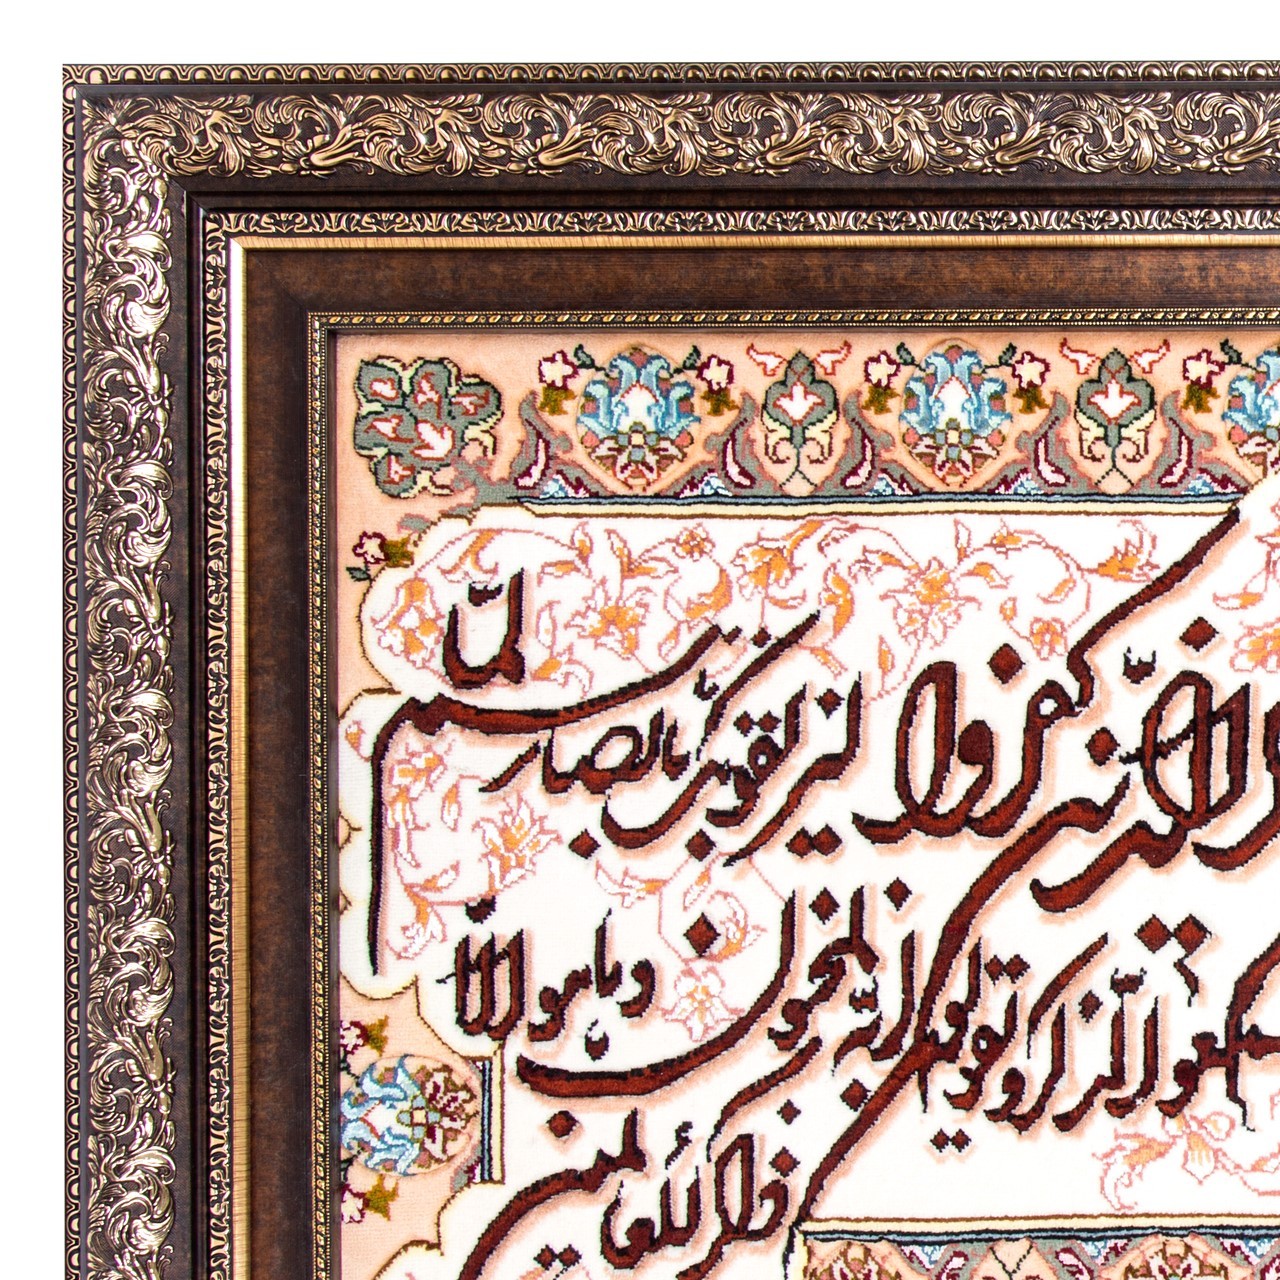 الذين كفروا ليزلقونك بابصارهم لمّا
سمعوا الذكر ويقولون إنه لمجنون وما هو إلا
ذكر للعالمين